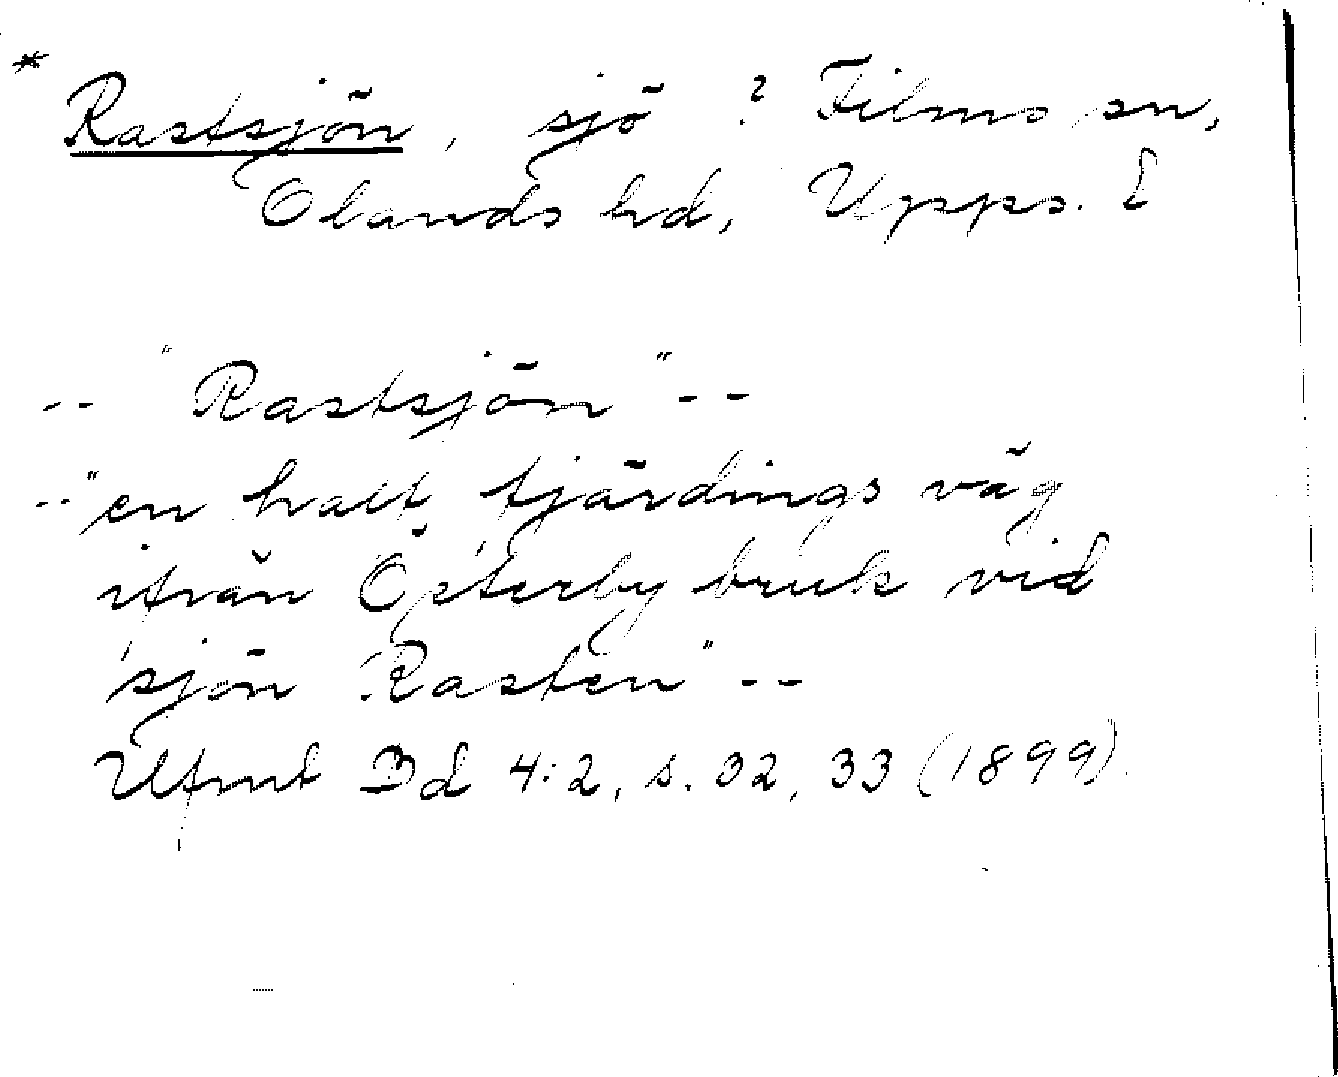 * Rastsjön, sjö ? Films sn,
Olands hd, Upps. l
-- "Rastsjön" --
-- "en half fjärdings väg
ifrån Österby bruk vid
sjön Rasten" --
Ufmt Bd 4:2, s. 32, 33 (1899).